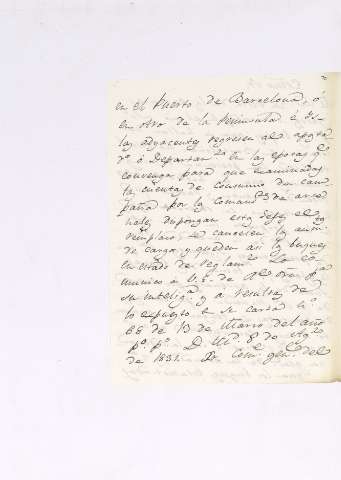 en el Puerto de Barcelona, ó
en otro de la Peninsula é Is-
las adyacentes regresen al apost.
ro ó Departam.to en las epocas q.e
convenga para que examinadas
la cuenta de consumo de cam
paña por la Comand.a de arse
nales dispongan esta Gefe el
remplazo, se cancelen los aum.
de cargo y queden asi los buques
en estado de reglam.to Lo co
munico a V.E. de R.l orn. p.a
su intelig.a y a resultas de
lo espuesto en su carta n.o
68 de 13 de Marzo del año
p.o p.o D. M.d 8 de Ag.to
de 1831. Sr. Com.te gen.l del